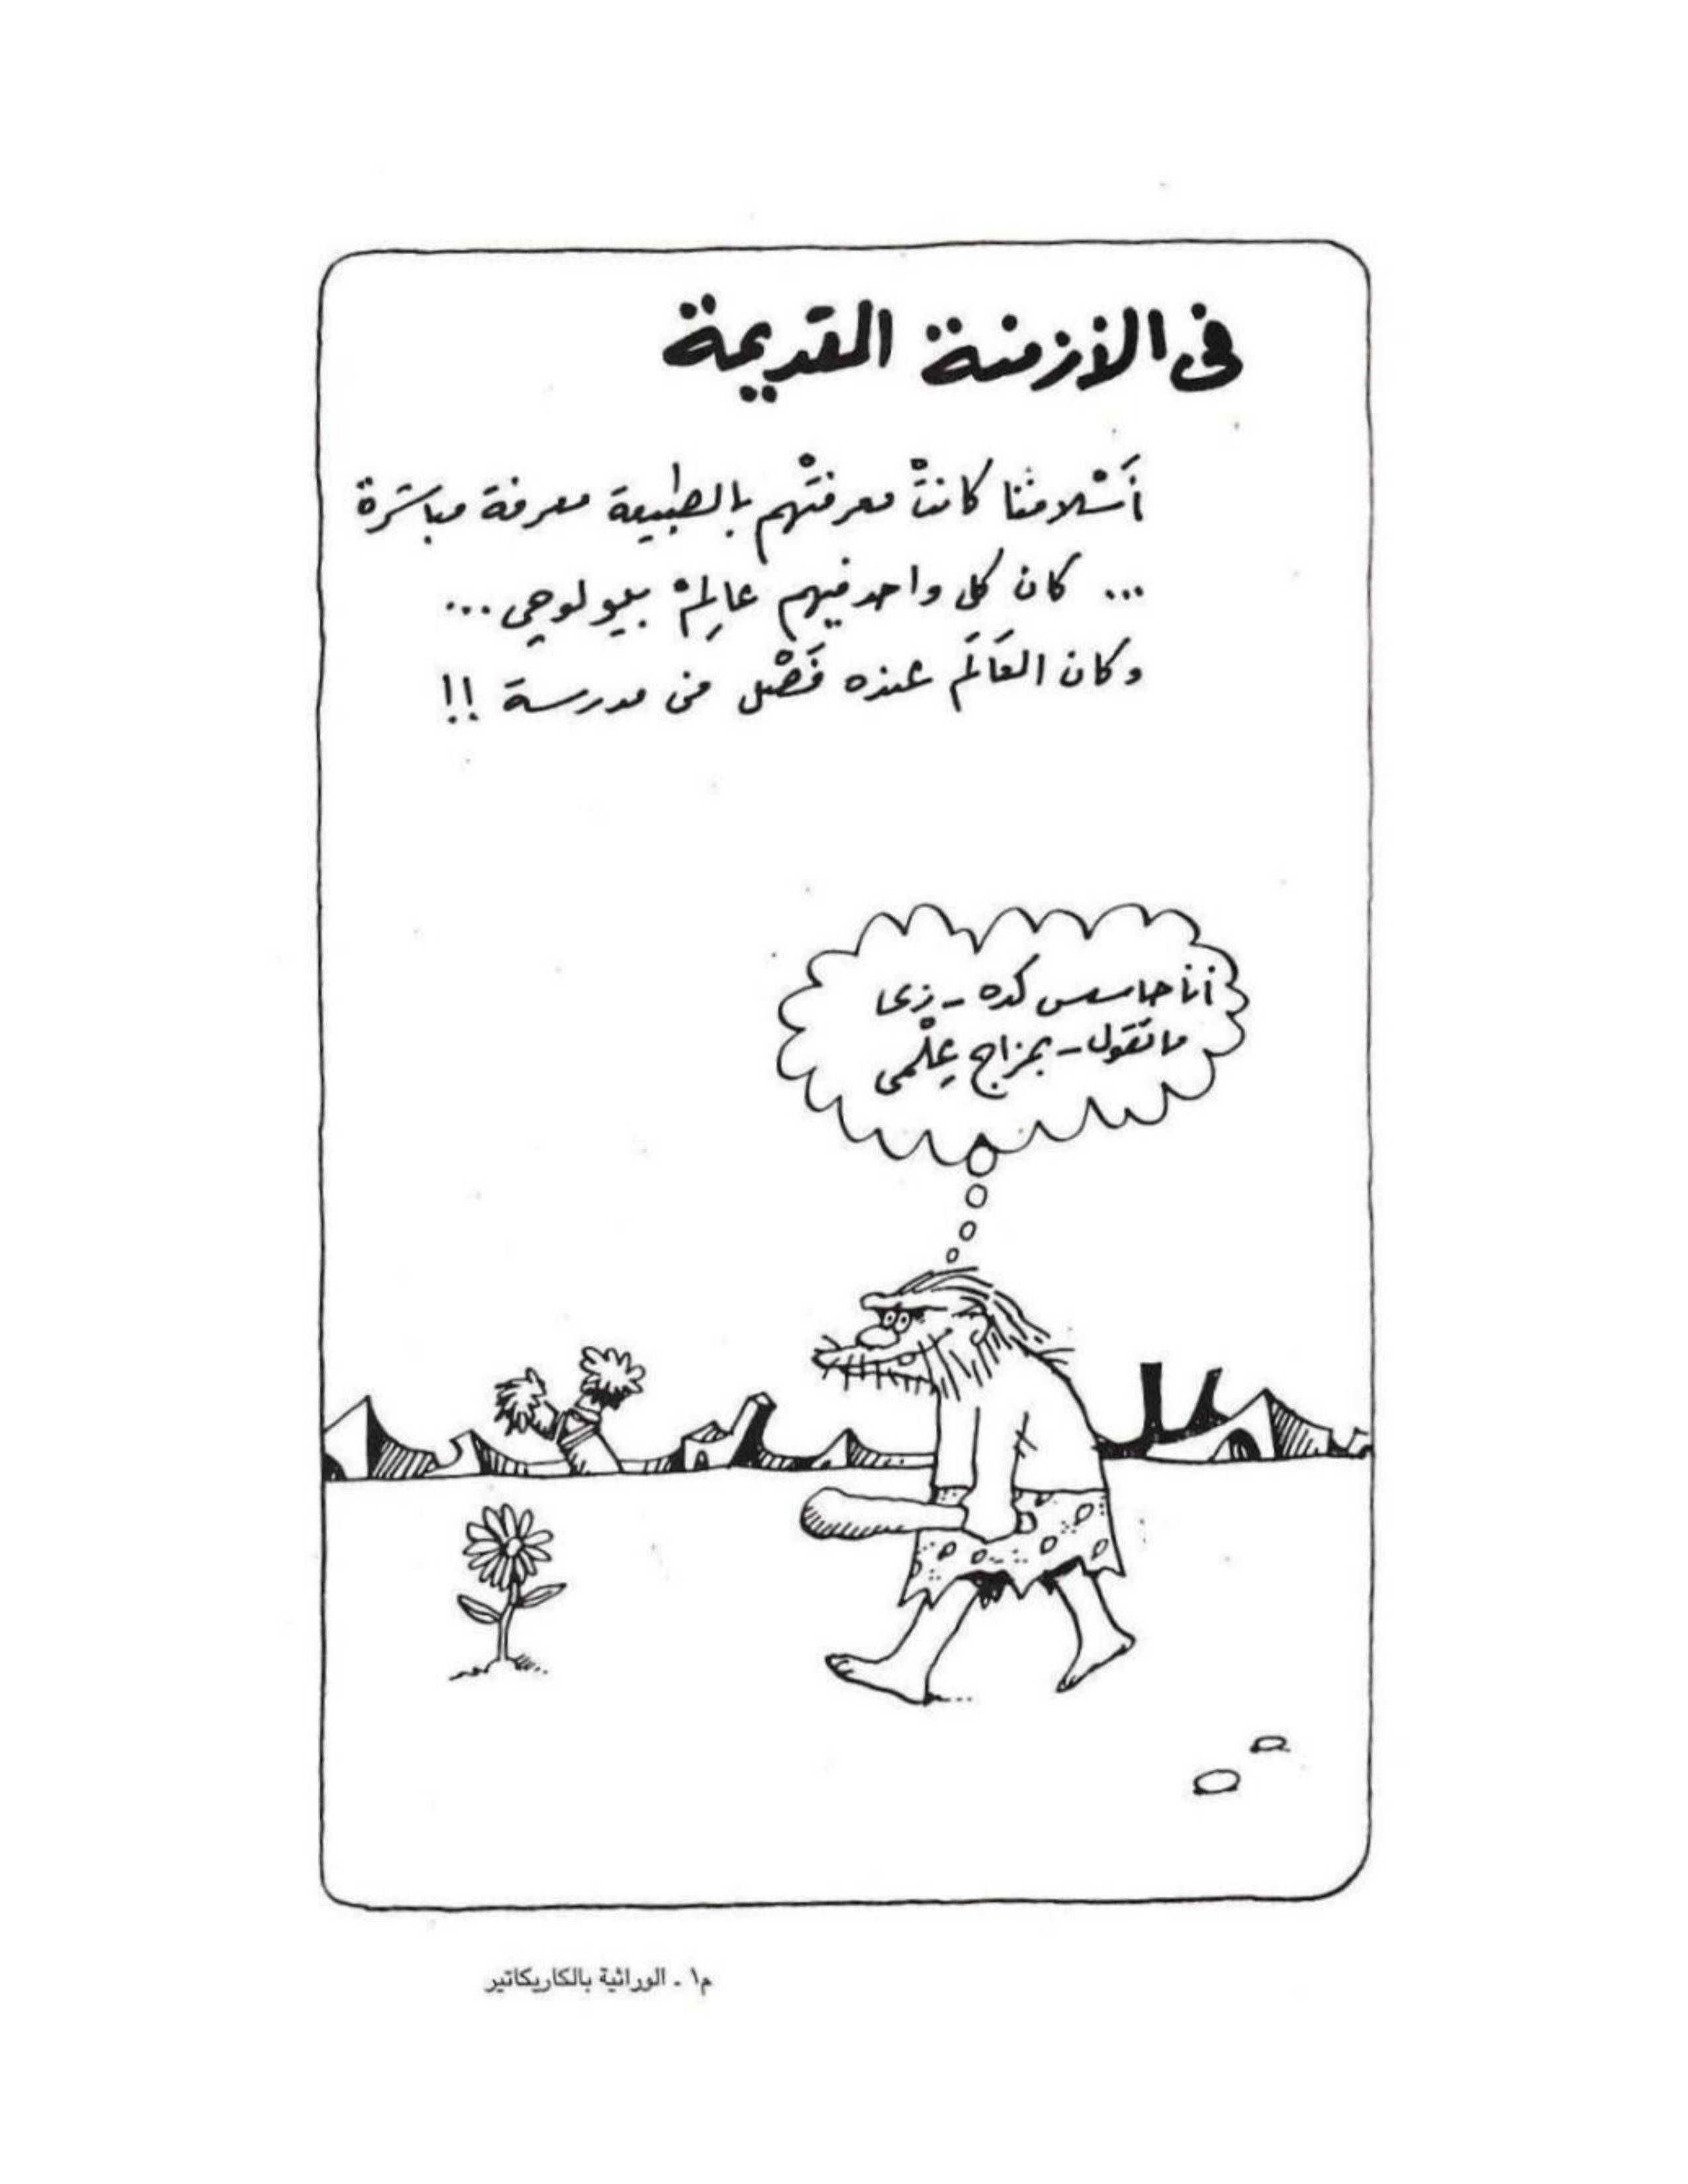 في الأزمنة القديمة
أَسْلافنا كانتْ معرفتْهم بالطبيعة معرفة مباشرة
... كان كل واحد فيهم عالِمْ بيولوجي ...
وكان العَالَم عنده فَصْل في مدرسة !!
أنا حاسس كده - زي
ما تقول - بمزاج عِلْمي
م١ - الوراثية بالكاريكاتير